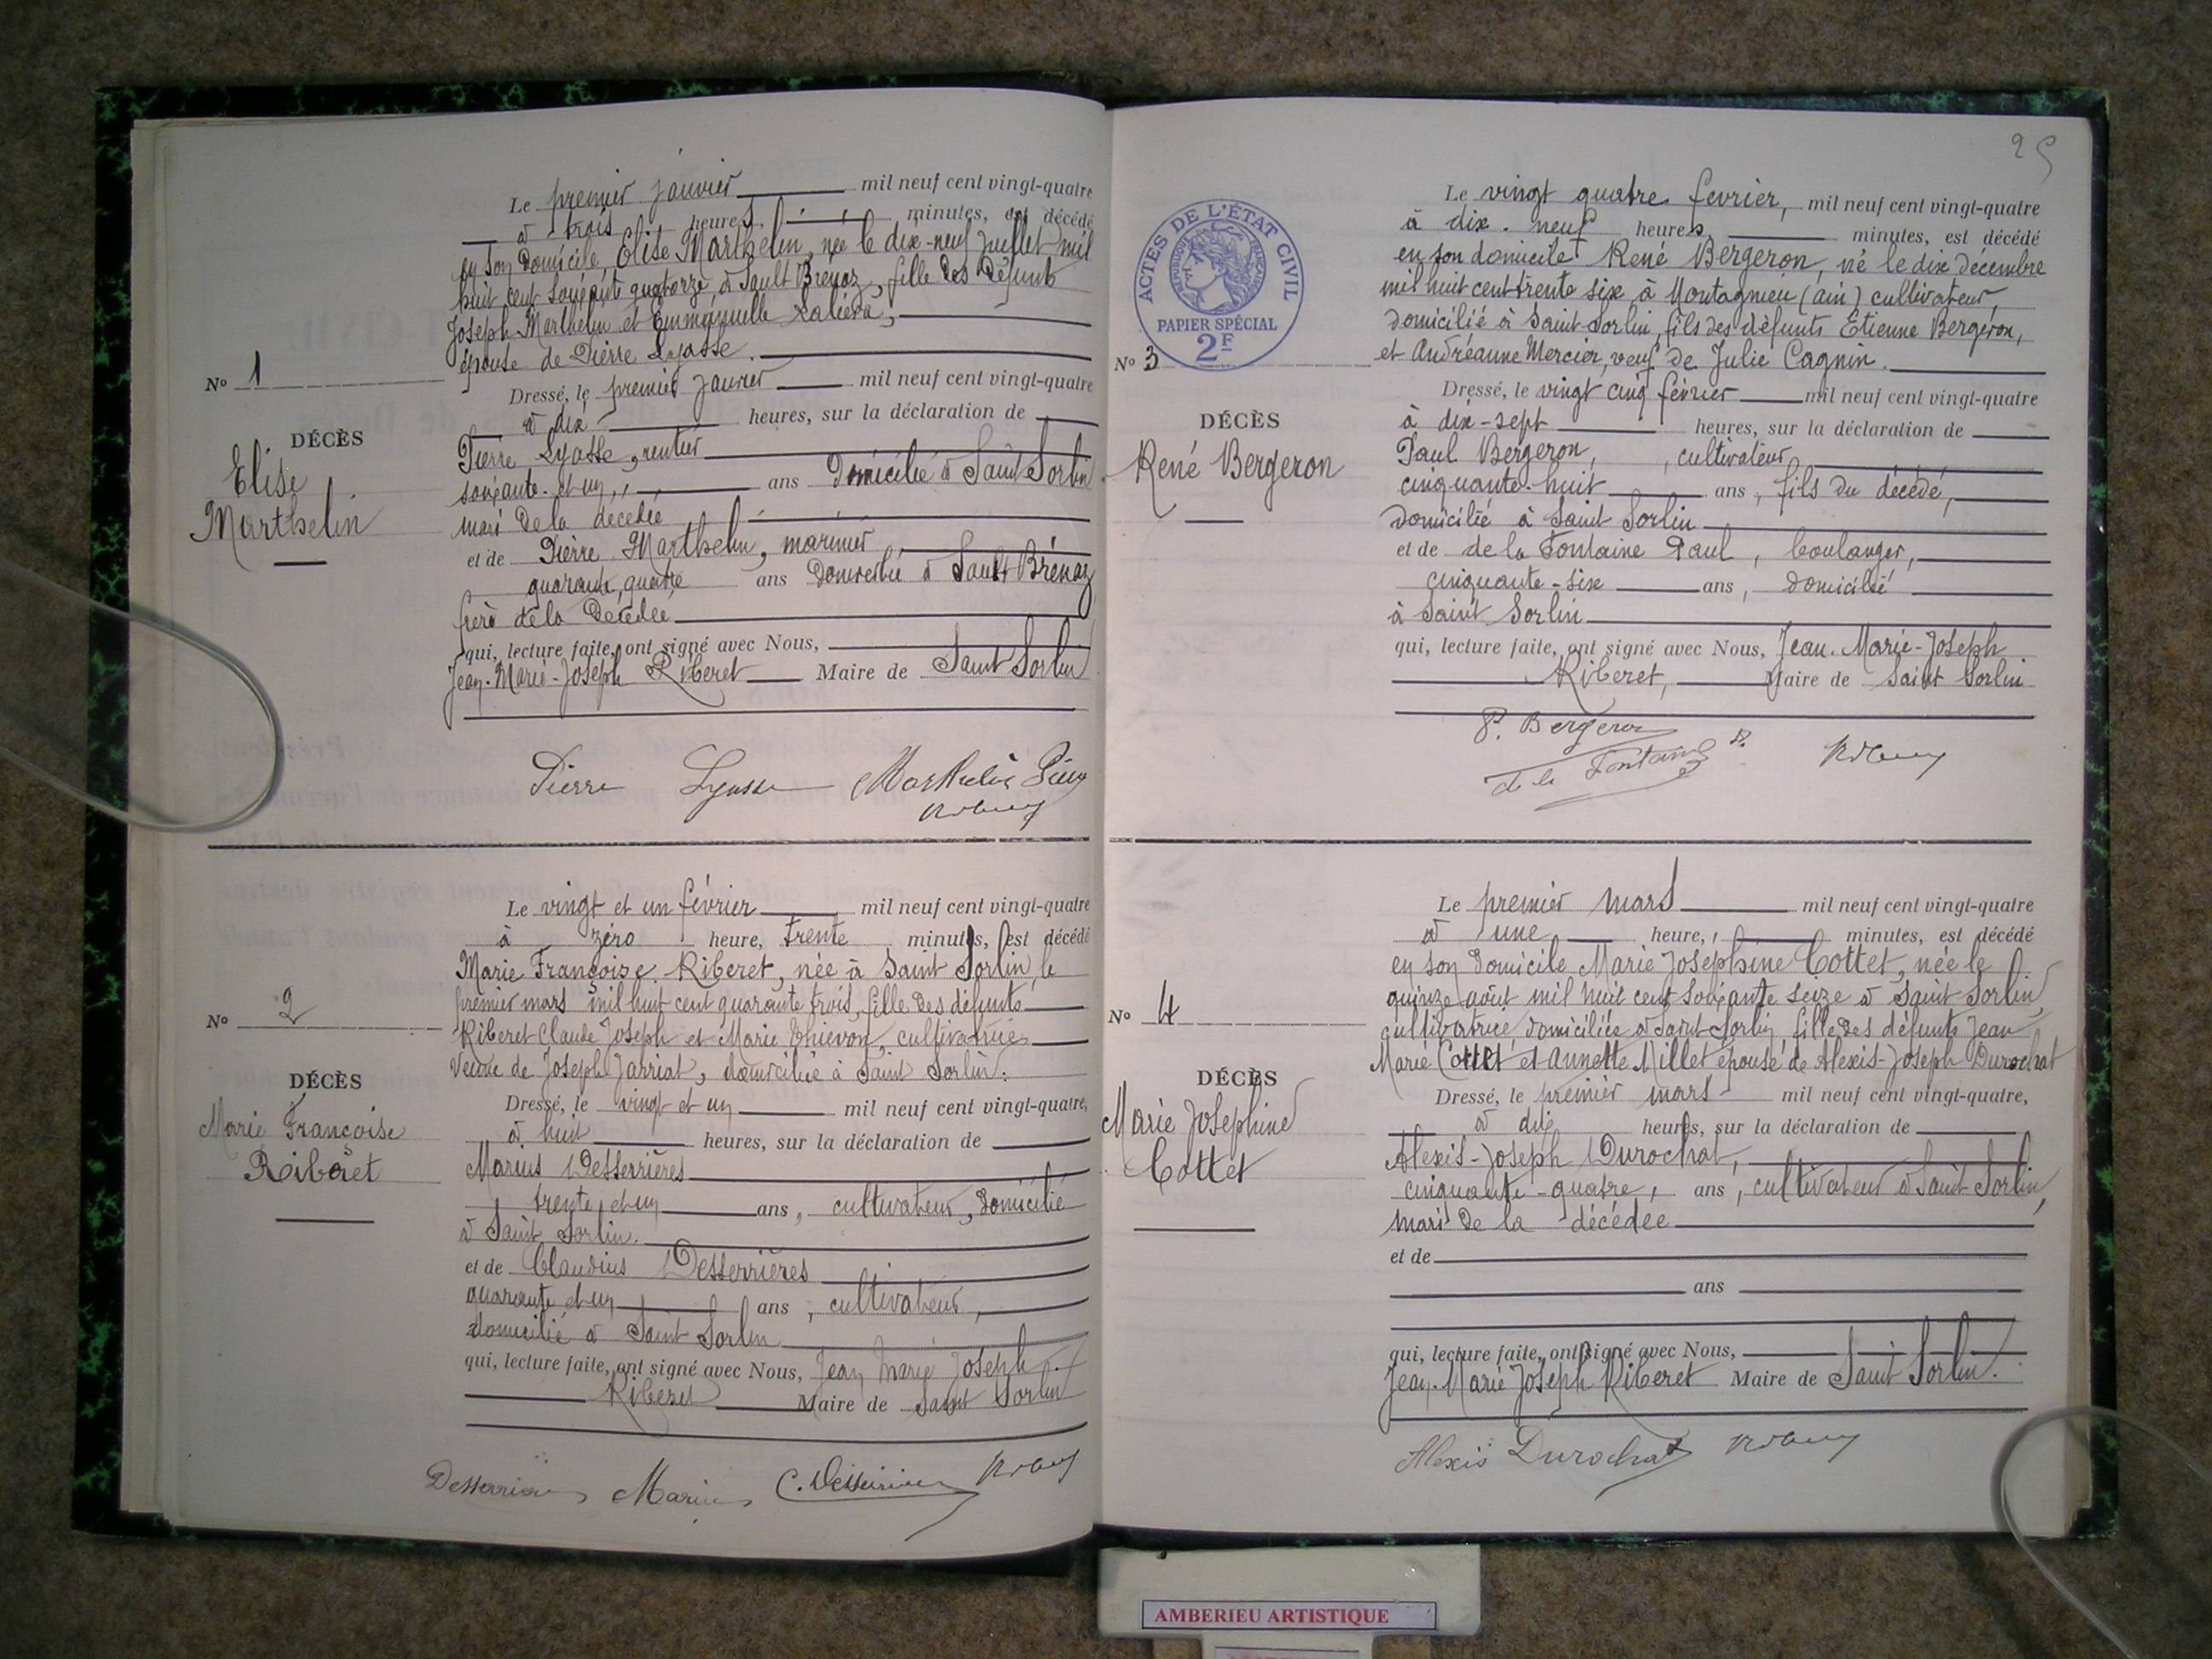 Le premier janvier mil neuf cent vingt-quatre
à trois heures, minutes, est décédé
en son domicile Elise Marthelin, née le dix-neuf juillet mil
huit cent soixante quatorze, à Sault Brénaz, fille des défunts
Joseph Marthelin et Emmanuelle
épouse de Pierre Lyasse.
No 1
DÉCÈS
Elise
Marthelin
Dressé, le premier janvier mil neuf cent vingt-quatre
à dix heures, sur la déclaration de
Pierre Lyasse, rentier
soixante et un, ans domicilié à Saint Sorlin
mari de la décédée
et de Pierre Marthelin, marinier
quarante, quatre ans domicilié à Sault Brénaz
frère de la décédée
qui, lecture faite, ont signé avec Nous,
Jean-Marie-Joseph Riberet Maire de Saint Sorlin
Pierre Lyasse Marthelin
Le vingt et un février mil neuf cent vingt-quatre
à zéro heure, trente minutes, est décédé
Marie Françoise Riberet, née à Saint Sorlin, le
premier mars mil huit cent quarante trois, fille des défunts
Riberet Claude Joseph et Marie Thievon, cultivatrice
Veuve de Joseph Jarriat, domiciliée à Saint Sorlin.
No 2
DÉCÈS
Marie Françoise
Riberet
Dressé, le vingt et un mil neuf cent vingt-quatre,
à huit heures, sur la déclaration de
Marius Desserrières
trente et un ans, cultivateur, domicilié
à Saint Sorlin.
et de Claudius Desserrières
quarante et un ans, cultivateur,
domicilié à Saint Sorlin
qui, lecture faite, ont signé avec Nous, Jean Marie Joseph
Riberet Maire de Saint Sorlin
Marius C.
25
ACTES DE L'ÉTAT CIVIL
RÉPUBLIQUE FRANÇAISE
PAPIER SPÉCIAL
2F
Le vingt quatre fevrier, mil neuf cent vingt-quatre
à dix. neuf heures, minutes, est décédé
en son domicile René Bergeron, né le dix décembre
mil huit cent trente six à Montagnieu (ain) cultivateur,
domicilié à Saint-Sorlin, fils des défunts Etienne Bergeron,
et Andréanne Mercier, veuf de Julie Cagnin.
No 3
DÉCÈS
René Bergeron
Dressé, le vingt cinq février mil neuf cent vingt-quatre
à dix-sept heures, sur la déclaration de
Paul Bergeron, , cultivateur
cinquante-huit ans, fils du décédé,
domicilié à Saint Sorlin
et de de la Fontaine Paul, boulanger,
cinquante-six ans, domicilié
à Saint Sorlin
qui, lecture faite, ont signé avec Nous, Jean-Marie-Joseph
Riberet, Maire de Saint Sorlin
P. Bergeron
de la Fontaine P.
Le premier mars mil neuf cent vingt-quatre
à une heure, minutes, est décédé
en son domicile Marie Josephine Cottet, née le
quinze août mil huit cent soixante seize à Saint Sorlin,
cultivatrice domiciliée à Saint Sorlin fille des défunts Jean
Marie Cottet et Annette Millet épouse de Alexis-Joseph Durochat
No 4
DÉCÈS
Marie Josephine
Cottet
Dressé, le premier mars mil neuf cent vingt-quatre,
à dix heures, sur la déclaration de
Alexis-Joseph Durochat,
cinquante-quatre, ans, cultivateur à Saint Sorlin,
mari de la décédée
et de
ans
qui, lecture faite, ont signé avec Nous,
Jean-Marie Joseph Riberet Maire de Saint Sorlin.
Alexis Durochat
AMBERIEU ARTISTIQUE